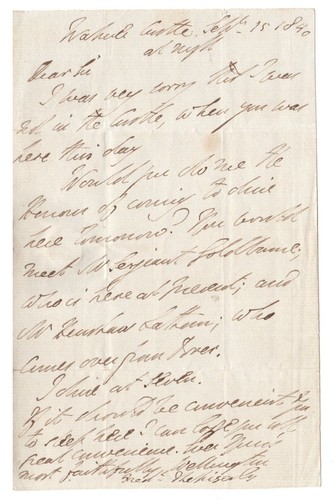 Walmer Castle. Sept. 15 1840
at night
Dear Sir
I was very sorry that I was
not in the Castle, when you was
here this day
Would you do me the
Honour of coming to dine
here tomorrow? You would
meet Mr Serjeant Goulburn,
who is here at present; and
Mr Henshaw Latham; who
comes over from Dover.
I dine at seven.
If it should be convenient to you
to sleep here I can lodge you with
great convenience. Ever Yours
most faithfully Wellington